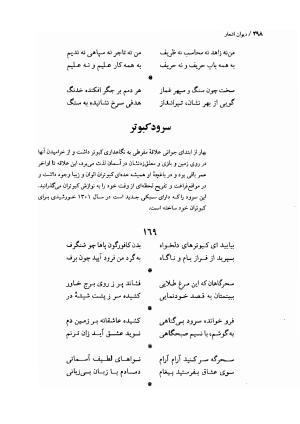 ۳۹۸ / دیوان اشعار
من نه زاهد نه محاسب نه ظریف
من نه تاجر نه سپاهی نه ندیم
به همه باب حریف و نه حریف
به همه کار علیم و نه علیم
*
سخت چون سنگ و سپهر غماز
هر دم بر جگر افکنده خدنگ
گویی از بهر نشان، تیرانداز
هدفی سرخ نشانیده به سنگ
*
سرود کبوتر
بهار از ابتدای جوانی علاقهٔ مفرطی به نگاهداری کبوتر داشت و از خرامیدن آنها
در روی زمین و بازی و معلق‌زدنشان در آسمان لذت می‌برد، این علاقه تا اواخر
عمر باقی بود و در باغچهٔ او همیشه عده‌ای کبوتران الوان و زیبا وجود داشت و
در مواقع فراغت و تفریح لحظه‌ای از وقت خود را به نوازش کبوتران می‌گذرانید.
این سرود را که دارای سبکی جدید است در سال ۱۳۰۱ خورشیدی برای
کبوتران خود ساخته است.
۱۶۹
بیایید ای کبوترهای دلخواه
بدن کافورگون پاها چو شنگرف
بپرید از فراز بام و ناگاه
به گرد من فرود آیید چون برف
*
سحرگاهان که این مرغ طلایی
فشاند پر ز روی برج خاور
ببینمتان به قصد خودنمایی
کشیده سر ز پشت شیشهٔ در
*
فرو خوانده سرود بی‌گناهی
کشیده عاشقانه بر زمین دم
به گوشم، با نسیم صبحگاهی
نوید عشق آید زان ترنم
*
سحرگه سر کنید آرام آرام
نواهای لطیف آسمانی
سوی عشاق بفرستید پیغام
دمادم با زبان بی‌زبانی
*